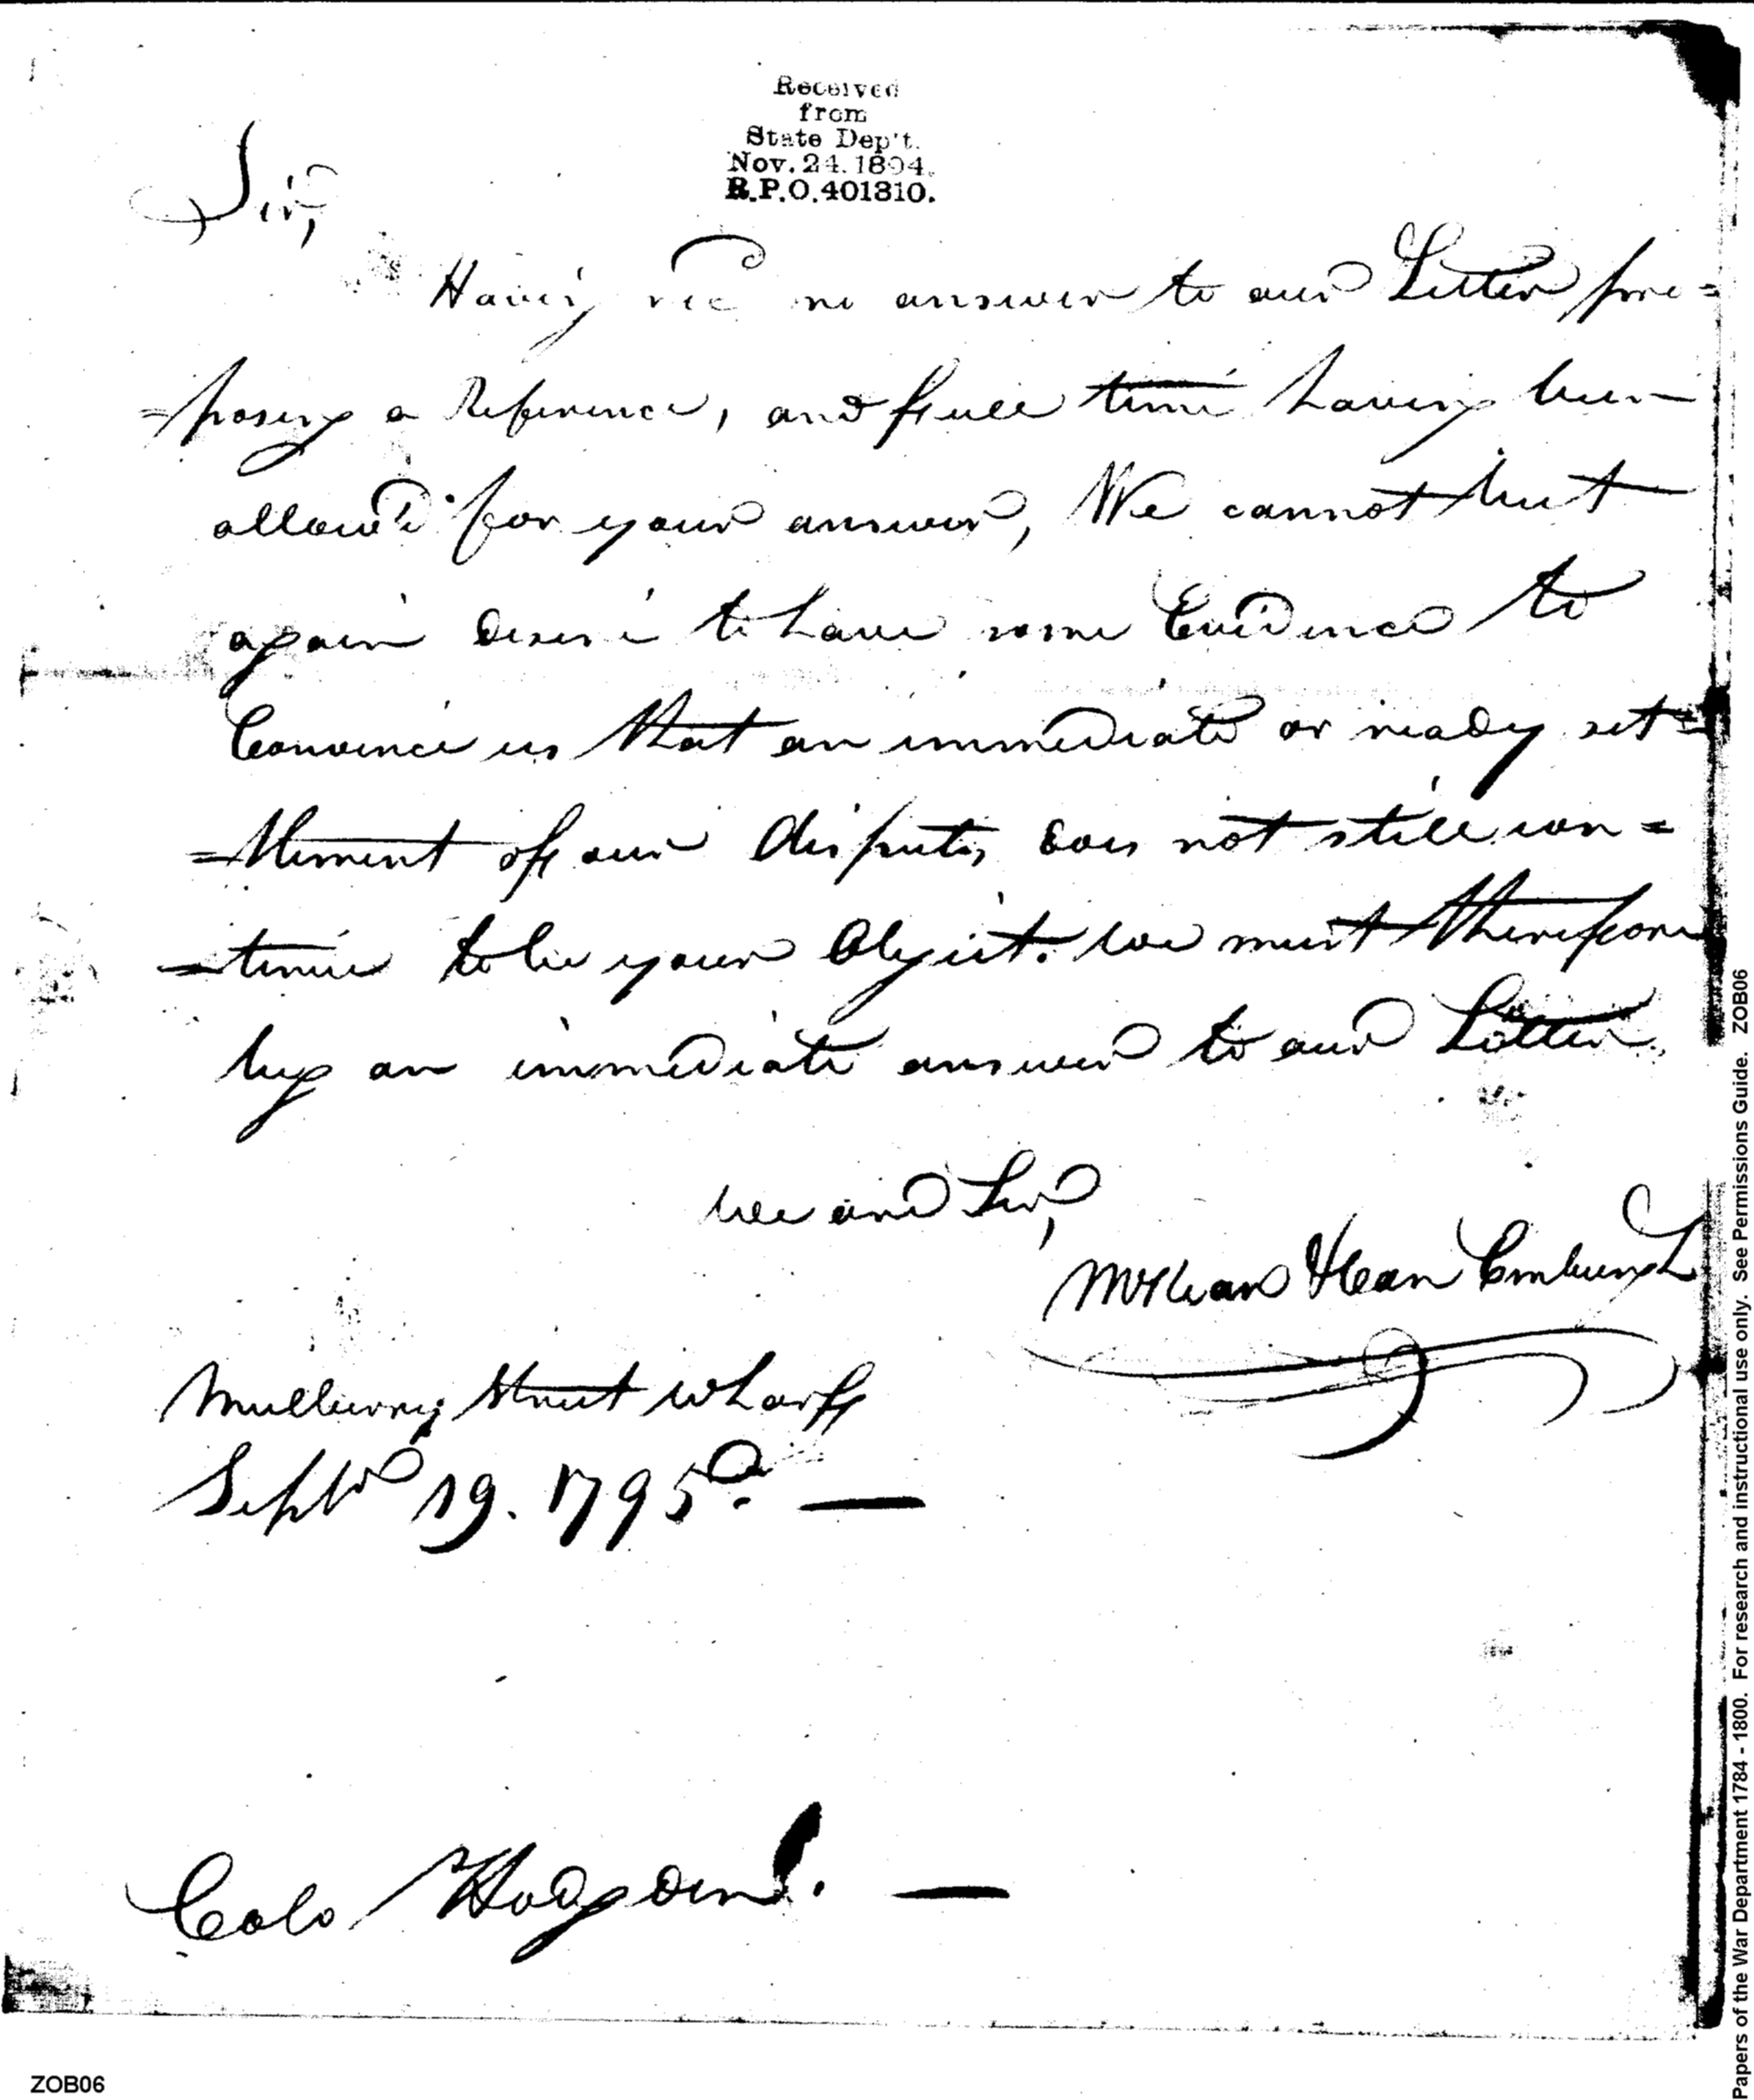 Received
from
State Dep't.
Nov. 24. 1894.
R.P.O. 401310.
Sir,
Having rec'd no answer to our Letter pro=
=posing a Reference, and full time having been
allow'd for your answer, We cannot but
again desire to have some Evidence to
Convince us that an immediate or ready set=
=tlement of our disputes does not still con=
=tinue to be your Object. we must therefore
beg an immediate answer to our Letter.
we are Sir,
Mullberry Street wharff
Septr 19. 1795. —
Colo Hodgdon. —
Papers of the War Department 1784 - 1800. For research and instructional use only. See Permissions Guide. ZOB06
ZOB06